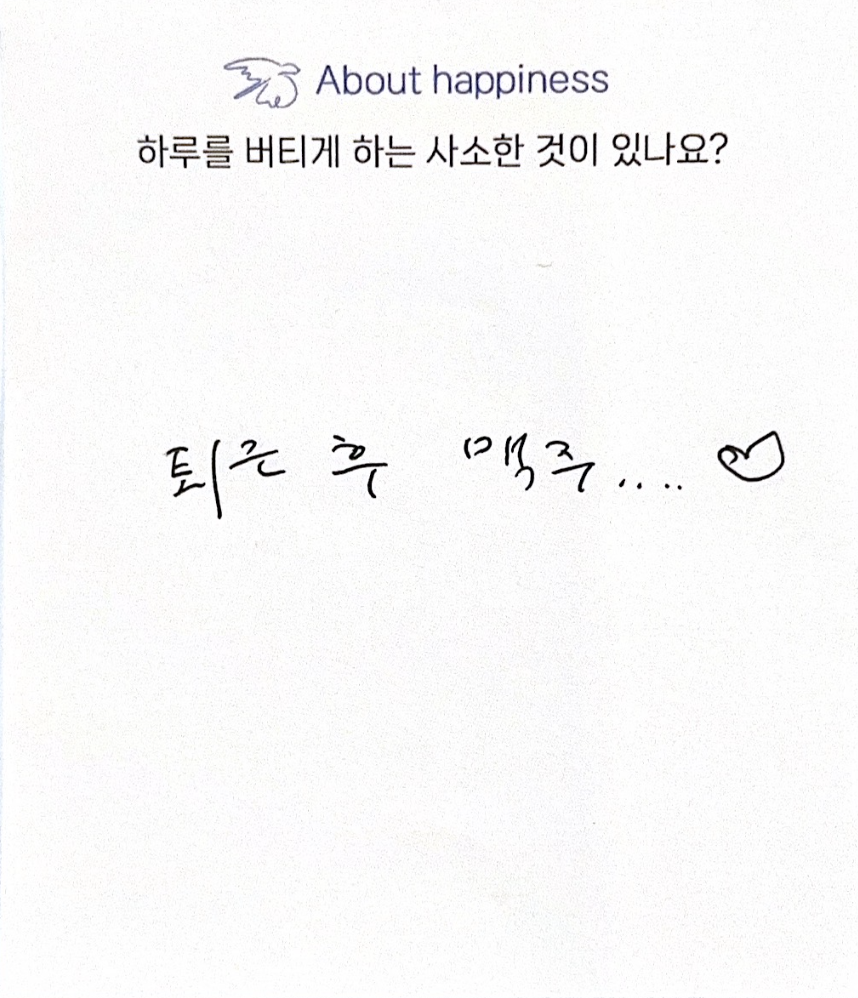 About happiness
하루를 버티게 하는 사소한 것이 있나요?
퇴근 후 맥주.... ♡